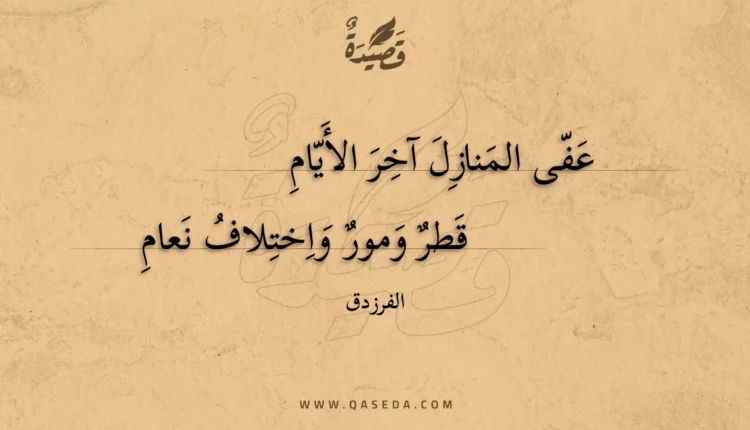 قَصِيدَةٌ
عَفّى المَنازِلَ آخِرَ الأَيّامِ
قَطرٌ وَمورٌ وَاِختِلافُ نَعامِ
الفرزدق
WWW.QASEDA.COM